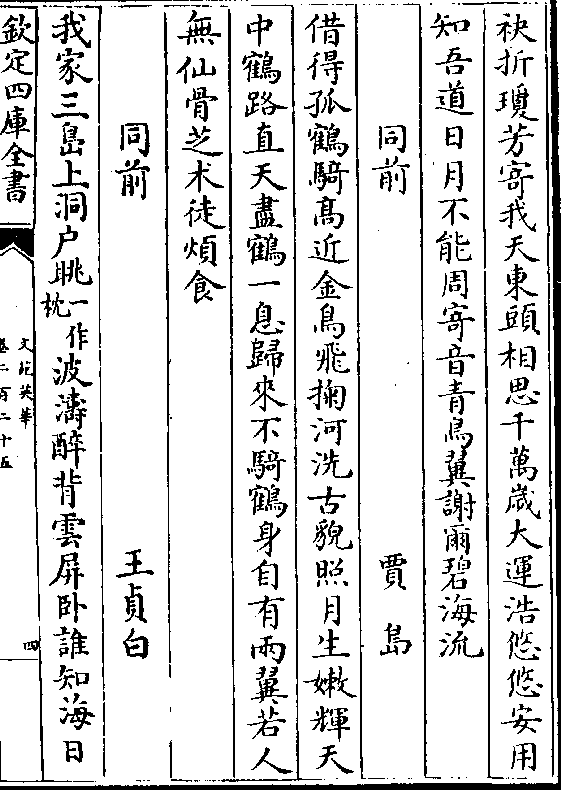 袂折瓊芳寄我天東頭相思千萬歲大運浩悠悠安用
知吾道日月不能周寄音青鳥翼謝爾碧海流
同前 賈島
借得孤鶴騎高近金烏飛掬河洗古貌照月生嫩輝天
中鶴路直天盡鶴一息歸來不騎鶴身自有兩翼若人
無仙骨芝术徒煩食
同前 王貞白
我家三島上洞户眺一作枕波濤醉背雲屏卧誰知海日
欽定四庫全書
文苑英華
卷二百二十五
四